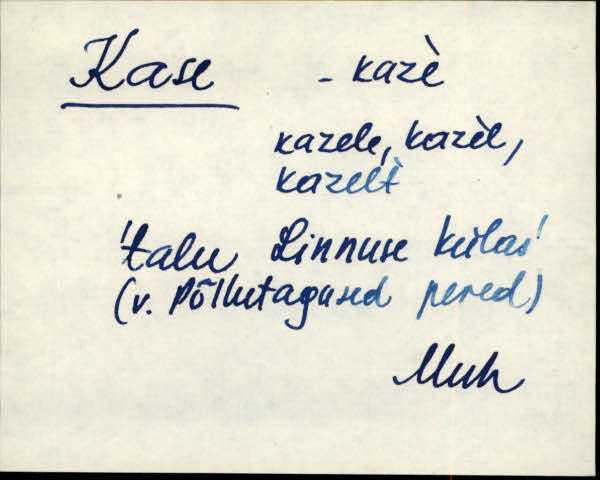 Kase - kazè
kazele, kazèl,
kazelt
'talu Linnuse külas'
(v. Põllutagused pered)
Muh